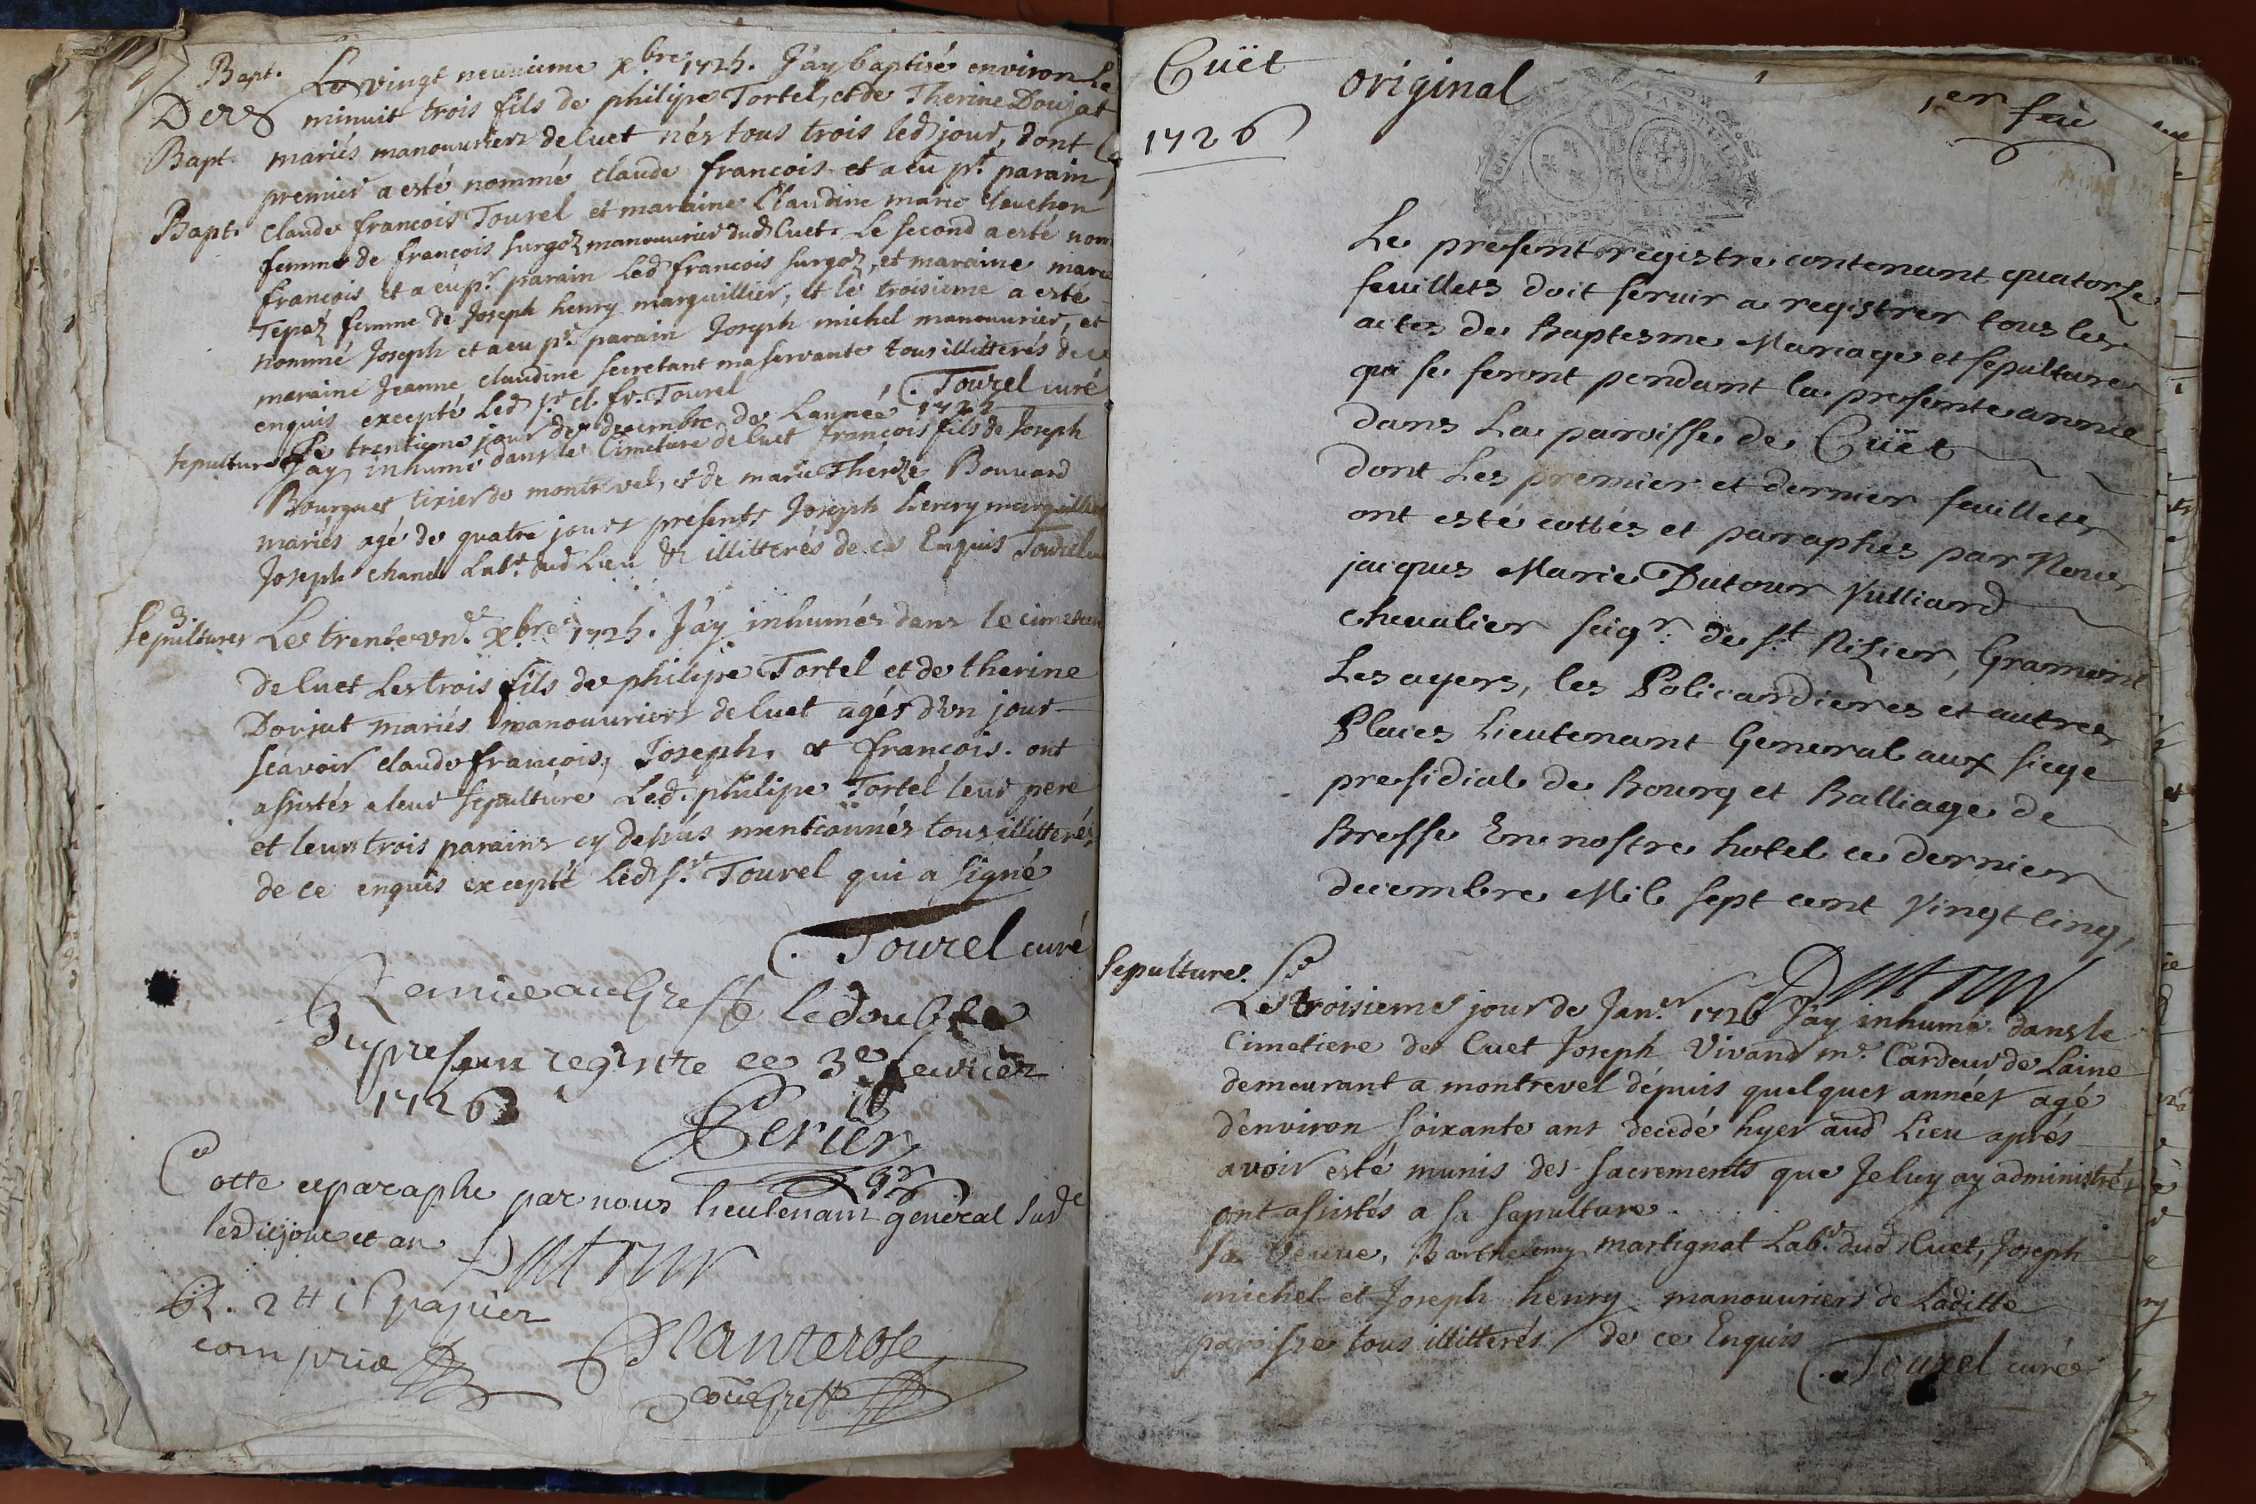 Bapt. Le vingt neuvieme xbre 1725. J'ay baptisé environ le
Der minuit trois fils de philipe Tortel, et de Therine Doujat
Bapt. mariés manouvriers de Cuet nés tous trois led jour, dont le
premier a esté nommé claude francois et a eu pr. parain
Bapt. Claude francois Tourel et maraine Claudine marie Cleuchon
femme de françois surgoz manouvrier dud Cuet. Le second a esté nom
francois et a eu pr. parain led francois surgoz, et maraine marie
Tepaz femme de Joseph henry marguillier, et le troisieme a esté
nommé Joseph et a eu pr. parain Joseph michel manouvrier, et
maraine Jeanne Claudine secretant ma servante tous illitterés de ce
enquis excepté led sr. cl. fr. Tourel C. Tourel curé
sepulture Le trentieme jour de decembre de Lannée
J'ay inhumé dans le Cimetiere de Cuet francois fils de Joseph
Bourgues tixier de montrevel, et de marie Thérèze Bouvard
mariés agé de quatre jours présents Joseph henry marguillier
Joseph chanel Labr. dud Lieu illitterés de ce Enquis Tourel
3 Sepultures Le trente vn.e xbre 1725. J'ay inhumés dans le cimetiere
de Cuet les trois fils de philipe Tortel et de therine
Doujat mariés manouvriers de Cuet agés d'vn jour
scavoir claude francois, Joseph, et françois. ont
assistés a leur sepulture Led. philipe Tortel leur pere
et leurs trois parains cy dessus mentionnés tous illitterés
de ce enquis excepté led sr. Tourel qui a signé
C. Tourel curé
Remice au Greffe le double
Du present registre ce 3e fevrier
1726
Perier
Cotte et paraphe par nous lieutenant general susde
lesdit jour et an Dutour
R. 2 tt papier
compris Planterose
Cuët original 1er feü
1726
Le present registre contenant quatorze
feuillets doit servir a registrer tous les
actes de Baptesme Mariage et sepultures
qui se feront pendant la presente année
dans La paroisse de Cüet
dont Les premier et dernier feuillets
ont esté cottés et paraphés par Nous
jacques Marie Dutour Vulliard
chevalier seigr. de st. Nizier, Gramont
Les ayers, les Policardieres et autres
Places Lieutenant General aux siege
presidial de Bourg et Balliage de
Bresse En nostre hotel ce dernier
decembre Mil sept cent Vingt Cinq,
Dutour
Sepulture. Le troisieme jour de Janer 1726 J'ay inhumé dans le
Cimetiere de Cuet Joseph Vivand me. Cardeur de Laine
demeurant a montrevel depuis quelques années agé
d'environ soixante ans decedé hyer aud Lieu aprés
avoir esté munis des sacrements que Je luy ay administrés
ont assistés a sa sepulture.
sa veuve, Barthelemy martignat Labr. dud Cuet, Joseph
michel et Joseph henry manouvriers de Laditte
paroisse tous illitterés de ce Enquis
C. Tourel curé